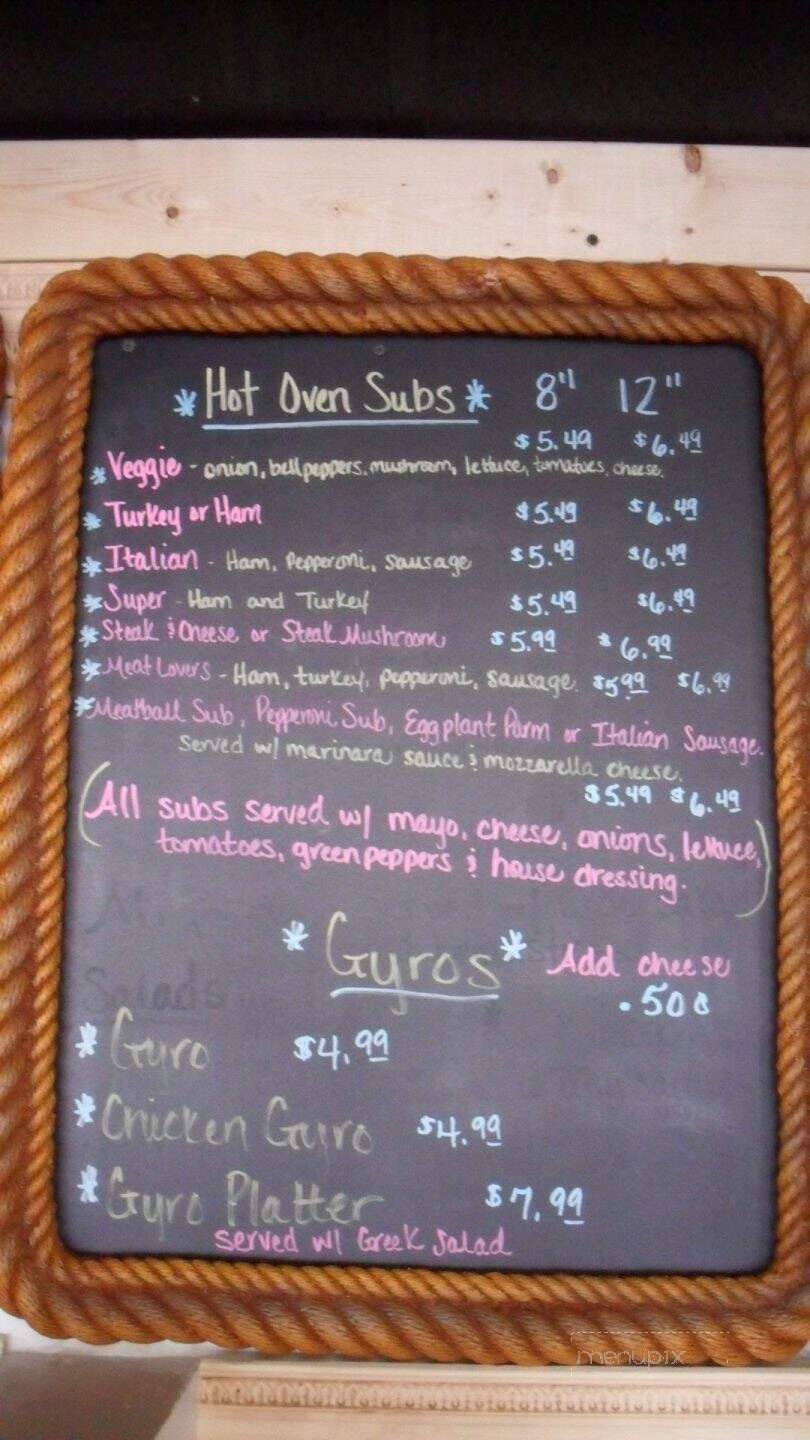 *Hot Oven Subs* 8" 12"
$5.49 $6.49
*Veggie - onion, bell peppers, mushroom, lettuce, tomatoes, cheese.
*Turkey or Ham $5.49 $6.49
*Italian - Ham, Pepperoni, Sausage $5.49 $6.49
*Super - Ham and Turkey $5.49 $6.49
*Steak & Cheese or Steak Mushroom $5.99 $6.99
*Meat Lovers - Ham, turkey, pepperoni, sausage. $5.99 $6.99
*Meatball Sub, Pepperoni Sub, Eggplant Parm or Italian Sausage.
Served w/ marinara sauce & mozzarella cheese.
$5.49 $6.49
(All subs served w/ mayo, cheese, onions, lettuce,
tomatoes, green peppers & house dressing.)
*Gyros* Add cheese
.50¢
Salads
*Gyro $4.99
*Chicken Gyro $4.99
*Gyro Platter $7.99
served w/ Greek Salad
menupix